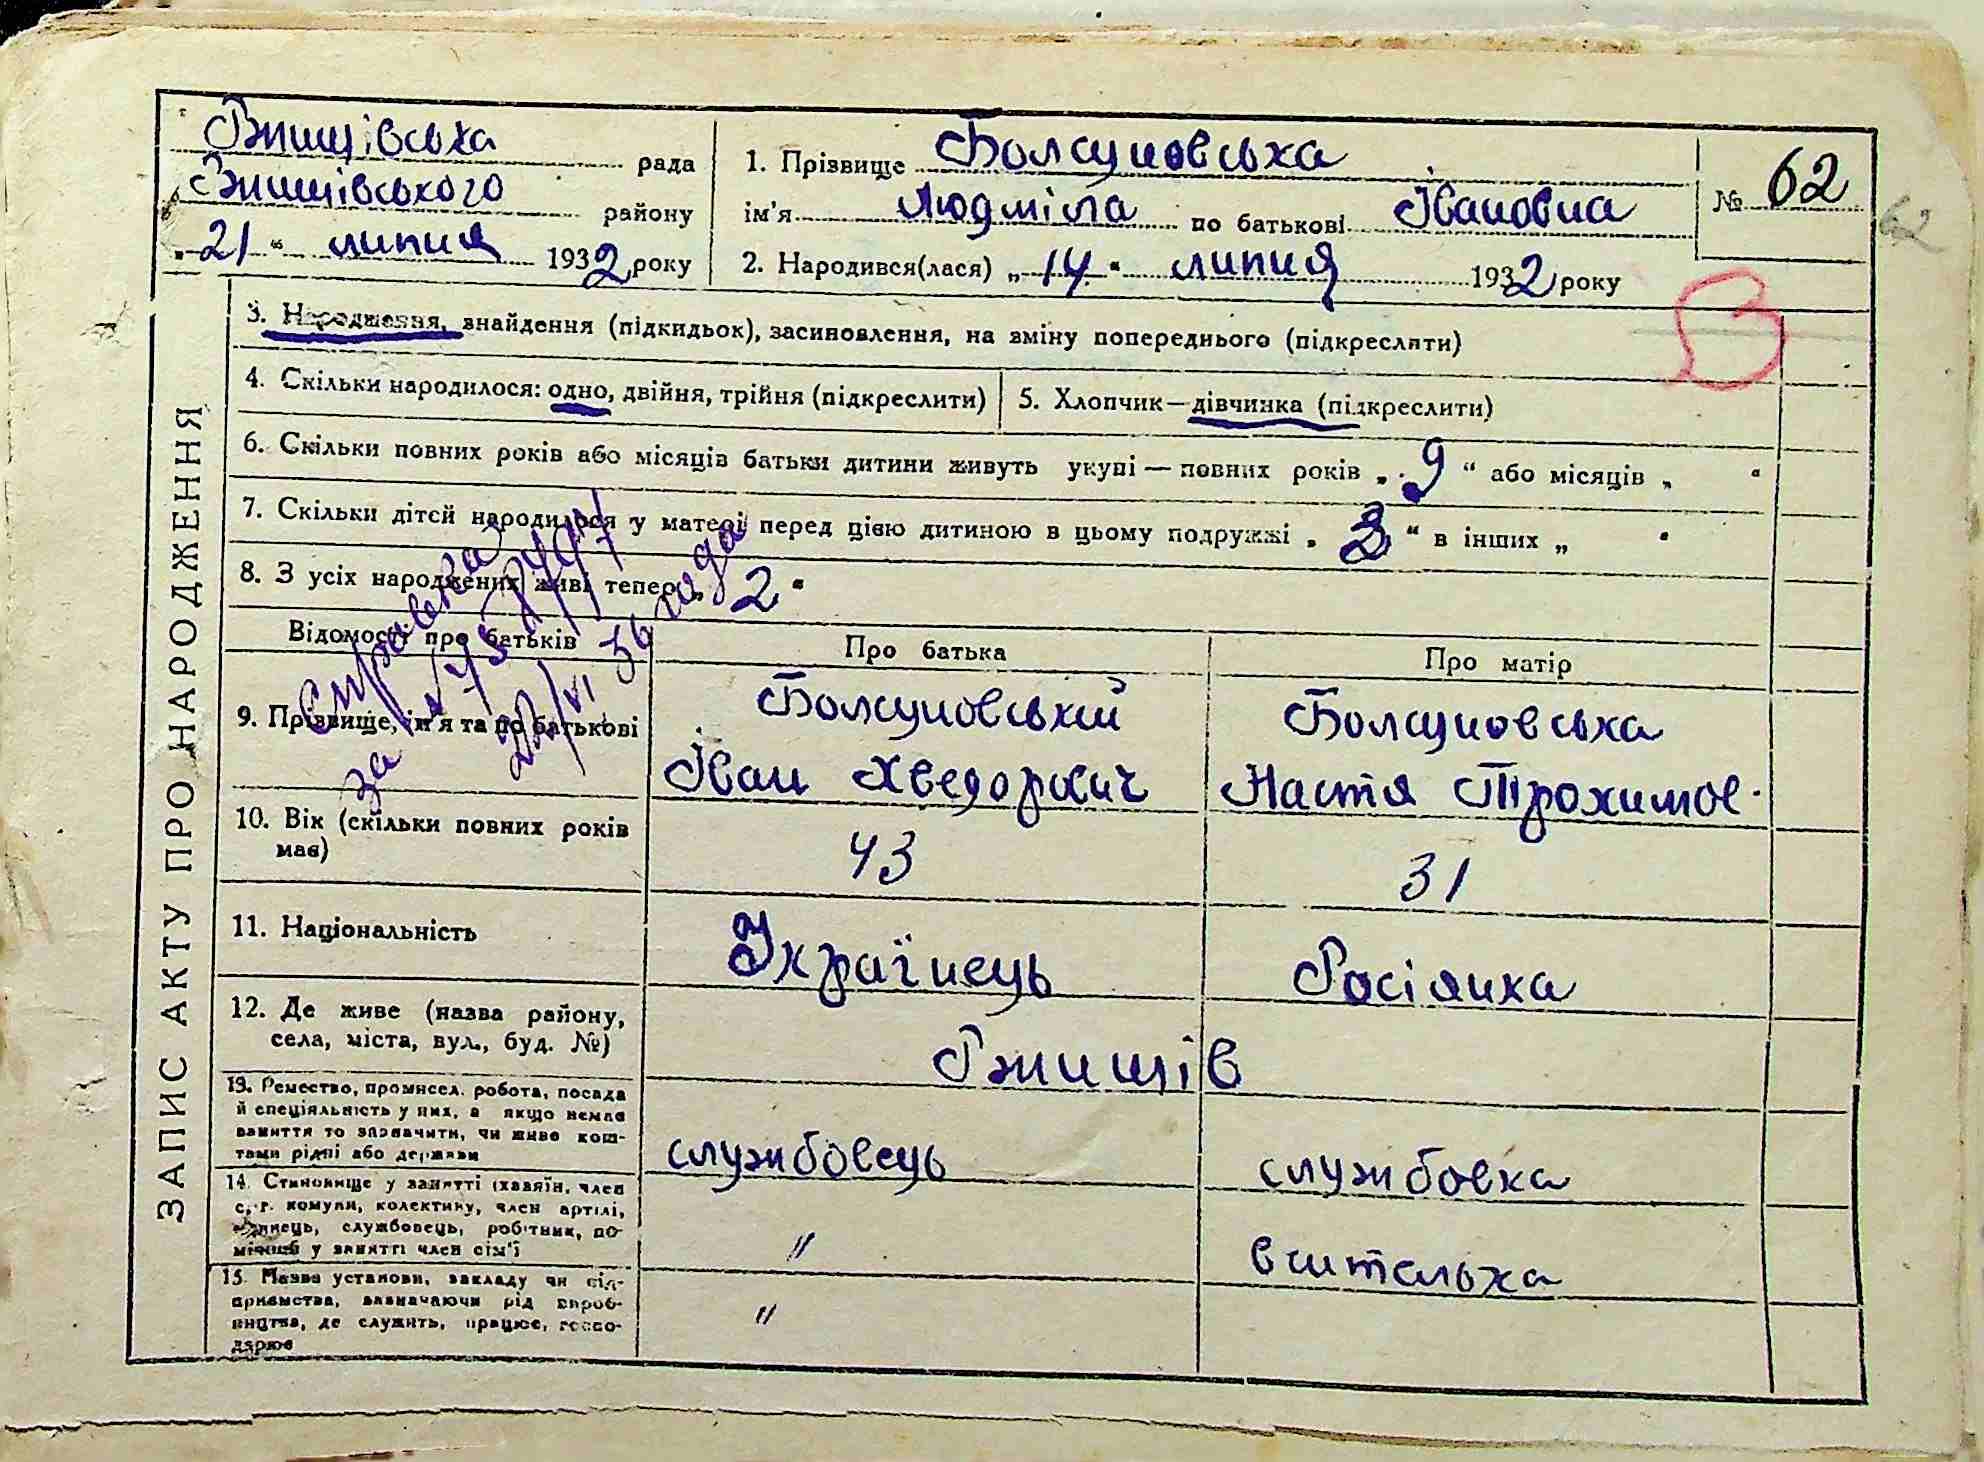 Ржищівська рада
Ржищівського району
„21“ липня 1932 року
1. Прізвище Болсуновська
ім'я Людміла по батькові Івановна
2. Народився(лася) „14“ липня 1932 року
№ 62
62
ЗАПИС АКТУ ПРО НАРОДЖЕННЯ
3. Народження, знайдення (підкидьок), засиновлення, на зміну попереднього (підкреслити)
4. Скільки народилося: одно, двійня, трійня (підкреслити)
5. Хлопчик—дівчинка (підкреслити)
6. Скільки повних років або місяців батьки дитини живуть укупі — повних років „9“ або місяців „ “
7. Скільки дітей народилося у матері перед цією дитиною в цьому подружжі „3“ в інших „ “
8. З усіх народжених живі тепер „2“
Відомості про батьків
Про батька
Про матір
9. Прізвище, ім'я та по батькові
Болсуновський
Іван Хведорович
Болсуновська
Настя Трохимов.
10. Вік (скільки повних років
має)
43
31
11. Національність
Українець
Росіянка
12. Де живе (назва району,
села, міста, вул., буд. №)
Ржищів
13. Ремество, промисел, робота, посада
й спеціяльність у них, а якщо немає
заняття то зазначити, чи живе кош-
тами рідні або держави
службовець
службовка
14. Становище у занятті (хазяїн, член
с.-г. комуни, колективу, член артілі,
службовець, робітник, по-
у занятті член сім'ї
"
вчителька
15. Назва установи, закладу чи під-
приємства, зазначаючи рід вироб-
ництва, де служить, працює, госпо-
дарює
"
Справка
за
36 года